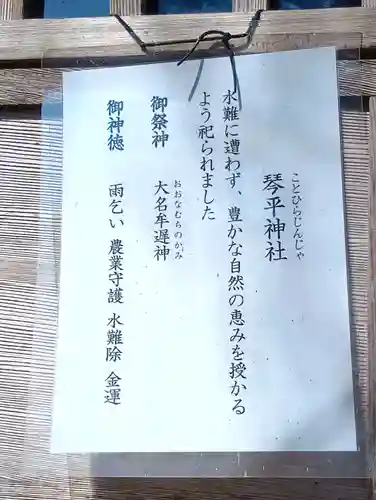 ことひらじんじゃ
琴平神社
水難に遭わず、豊かな自然の恵みを授かる
よう祀られました
御祭神 大名牟遅神
おおなむちのかみ
御神徳 雨乞い 農業守護 水難除 金運